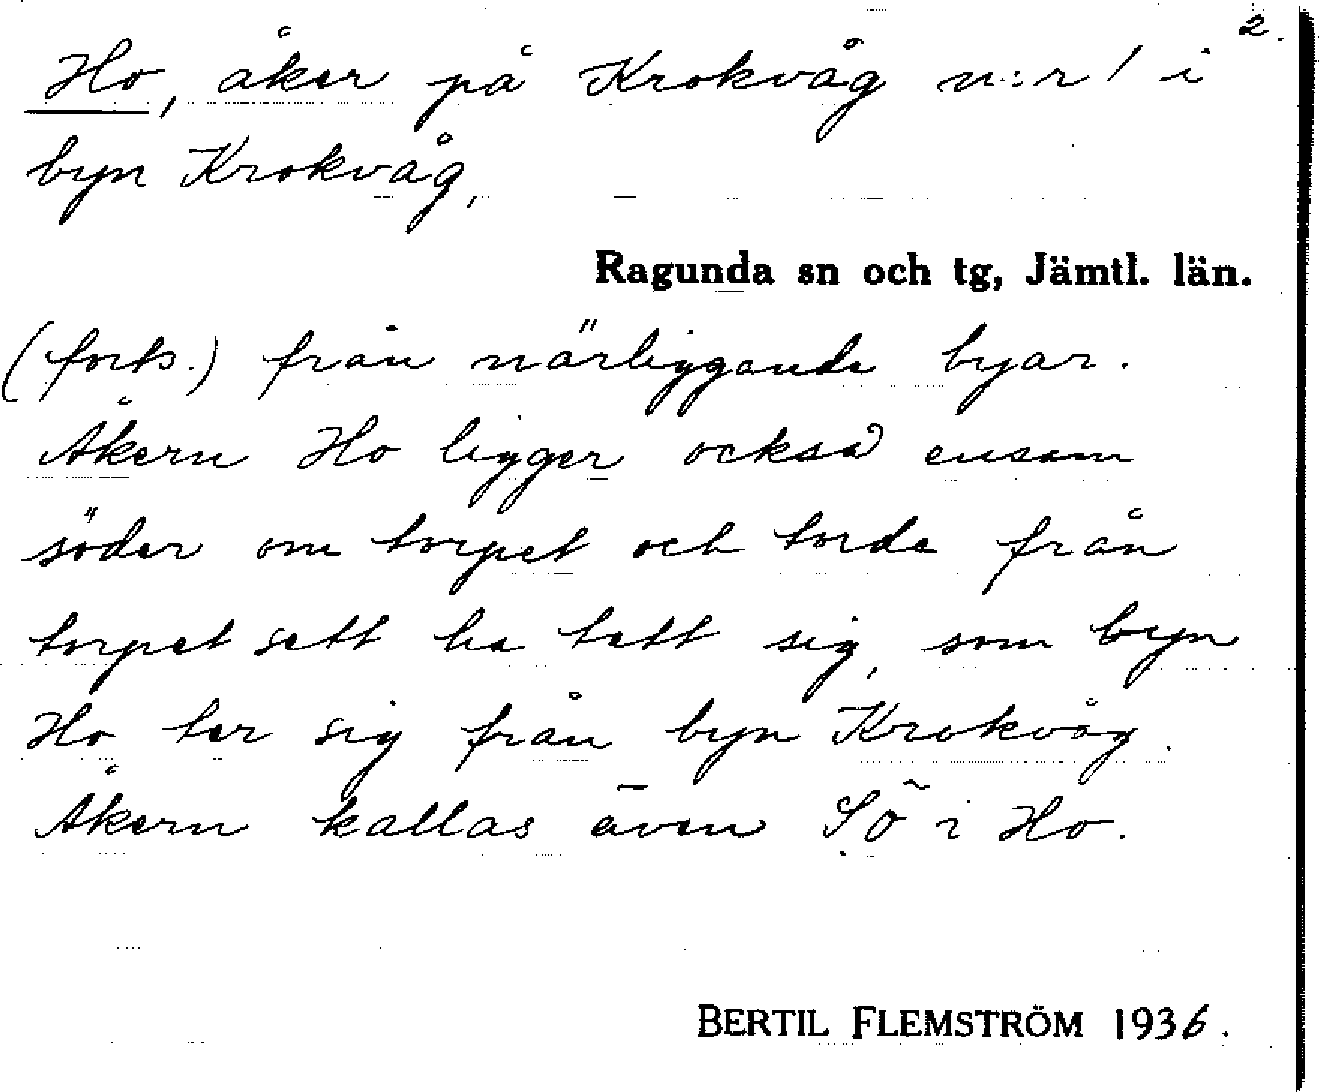 2.
Ho, åker på Krokvåg n:r 1 i
byn Krokvåg,
Ragunda sn och tg, Jämtl. län.
(forts.) från närliggande byar.
Åkern Ho ligger också ensam
söder om torpet och torde från
torpet sett ha tett sig, som byn
Ho ter sig från byn Krokvåg.
Åkern kallas även Sö i Ho.
BERTIL FLEMSTRÖM 1936.